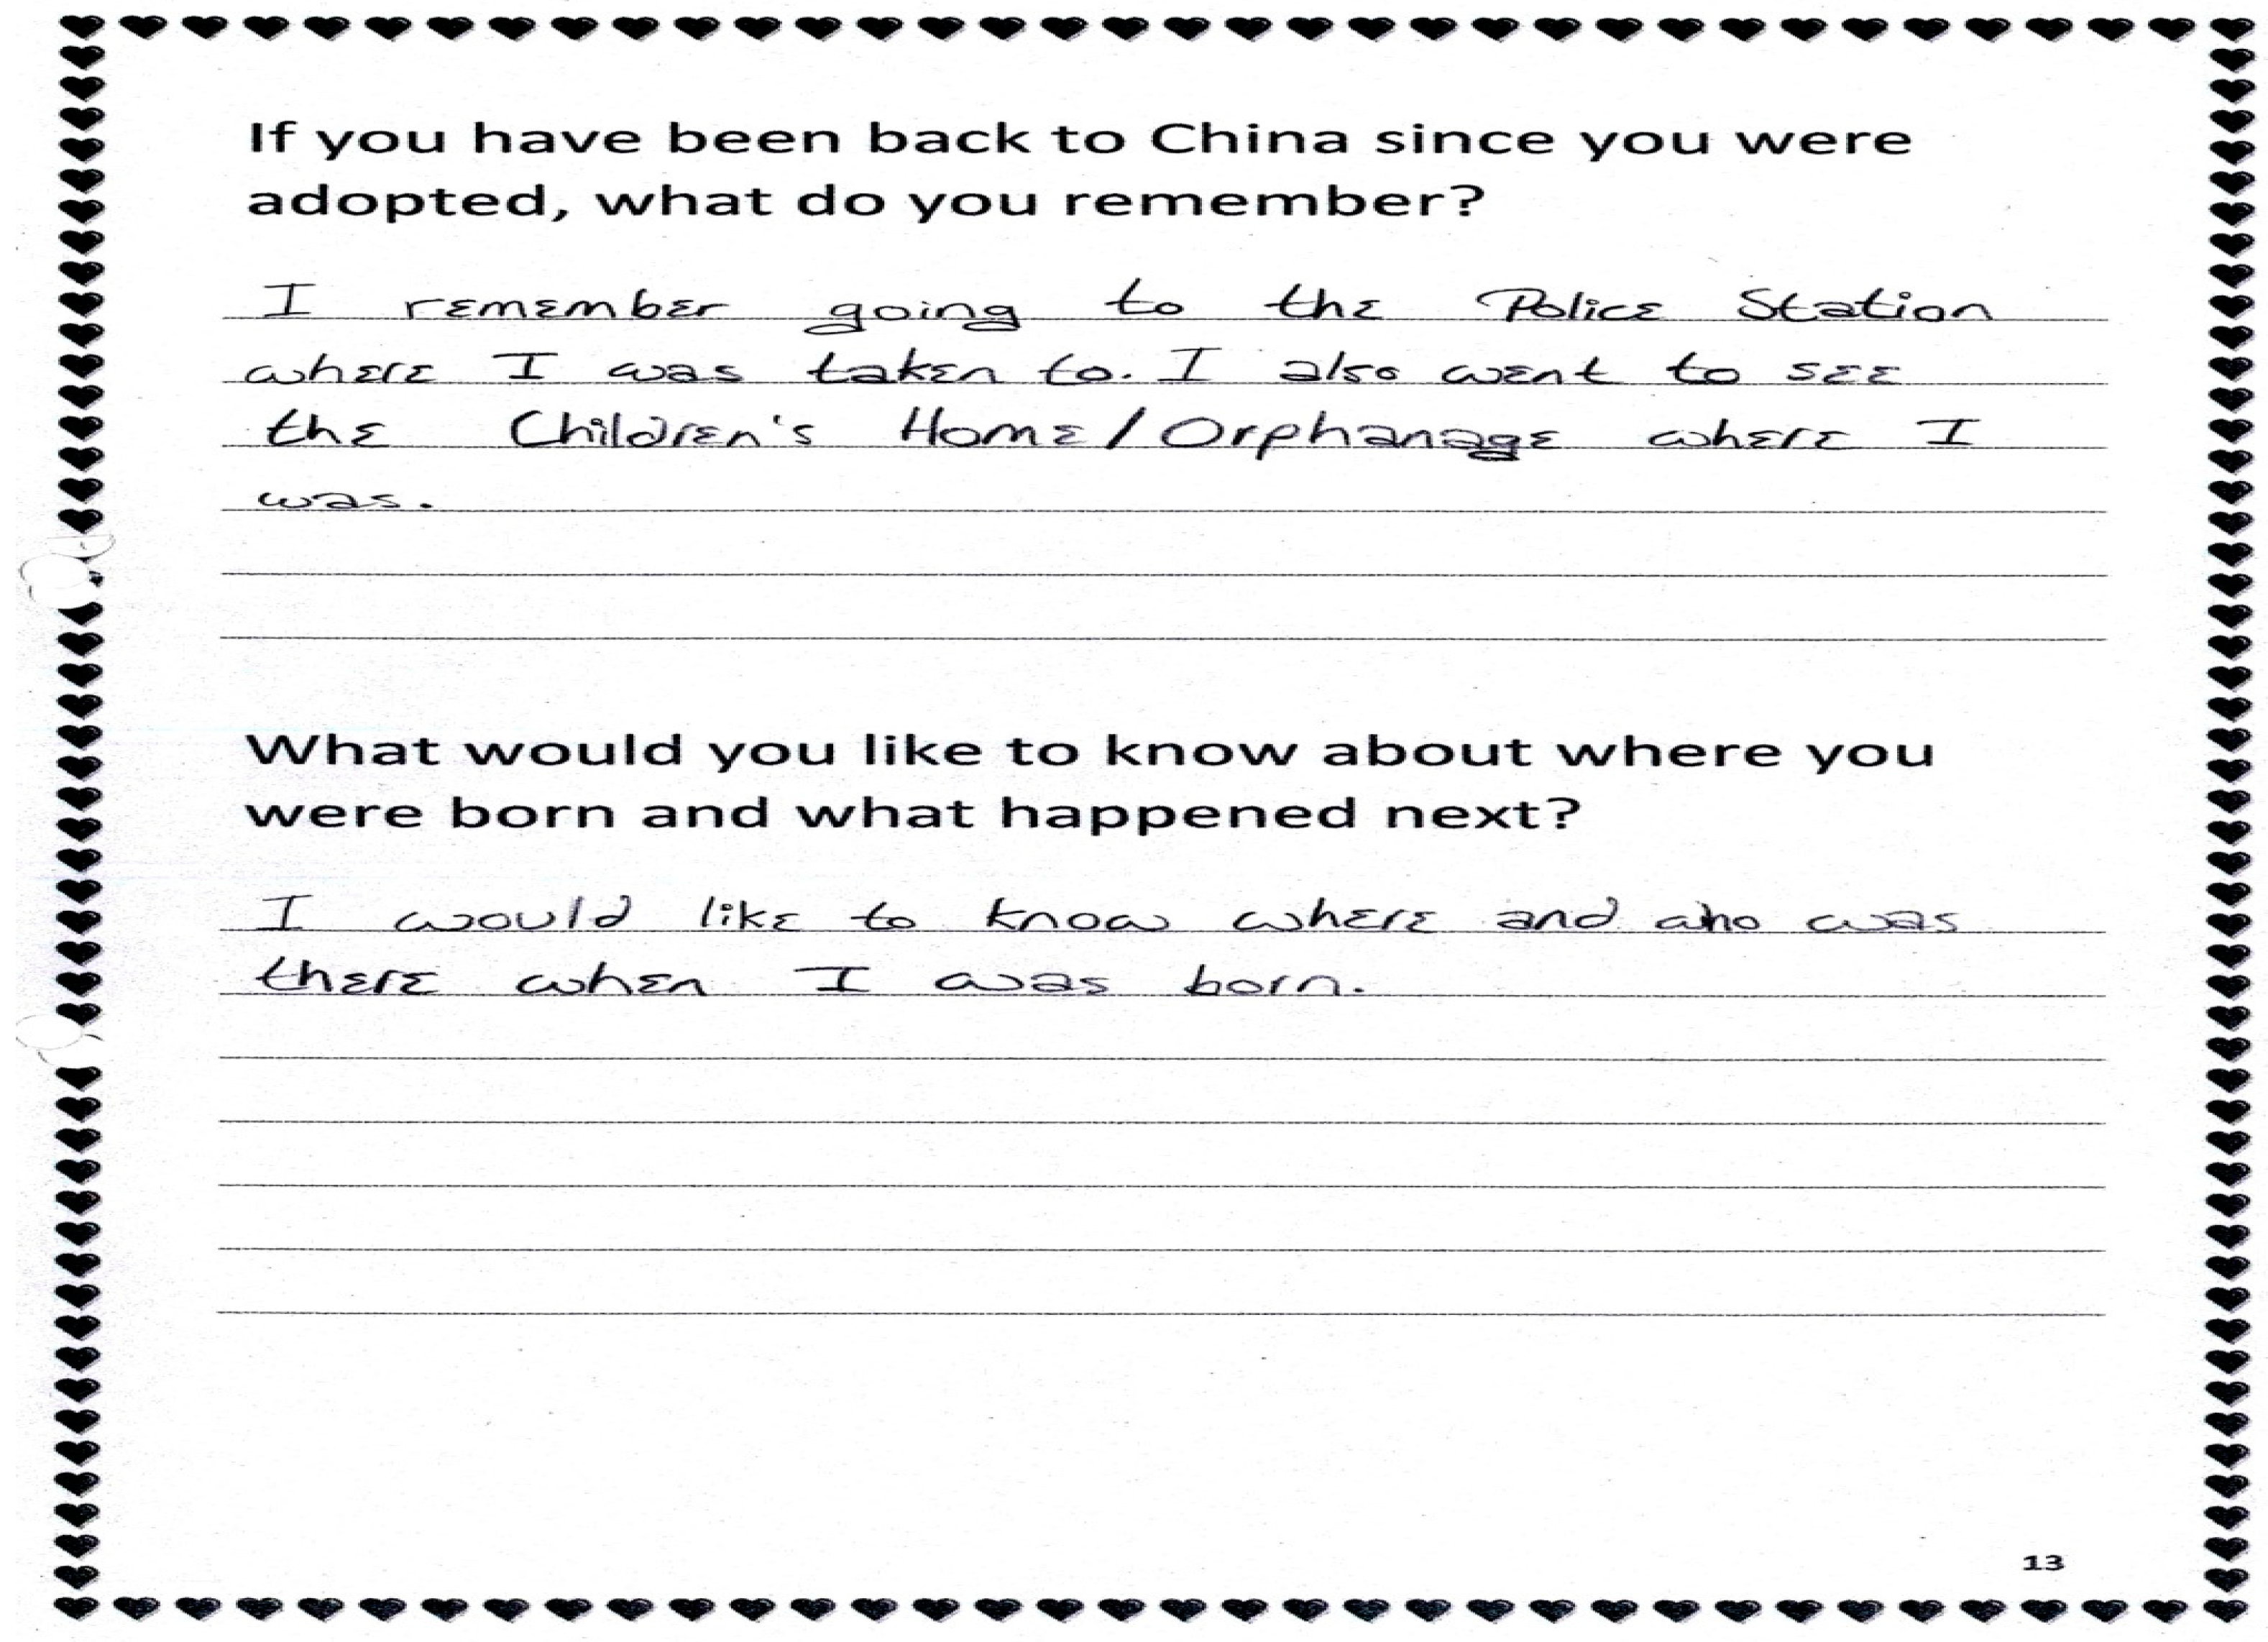 If you have been back to China since you were
adopted, what do you remember?
I remember going to the Police Station
where I was taken to. I also went to see
the Children's Home/Orphanage where I
was.
What would you like to know about where you
were born and what happened next?
I would like to know where and who was
there when I was born.
13